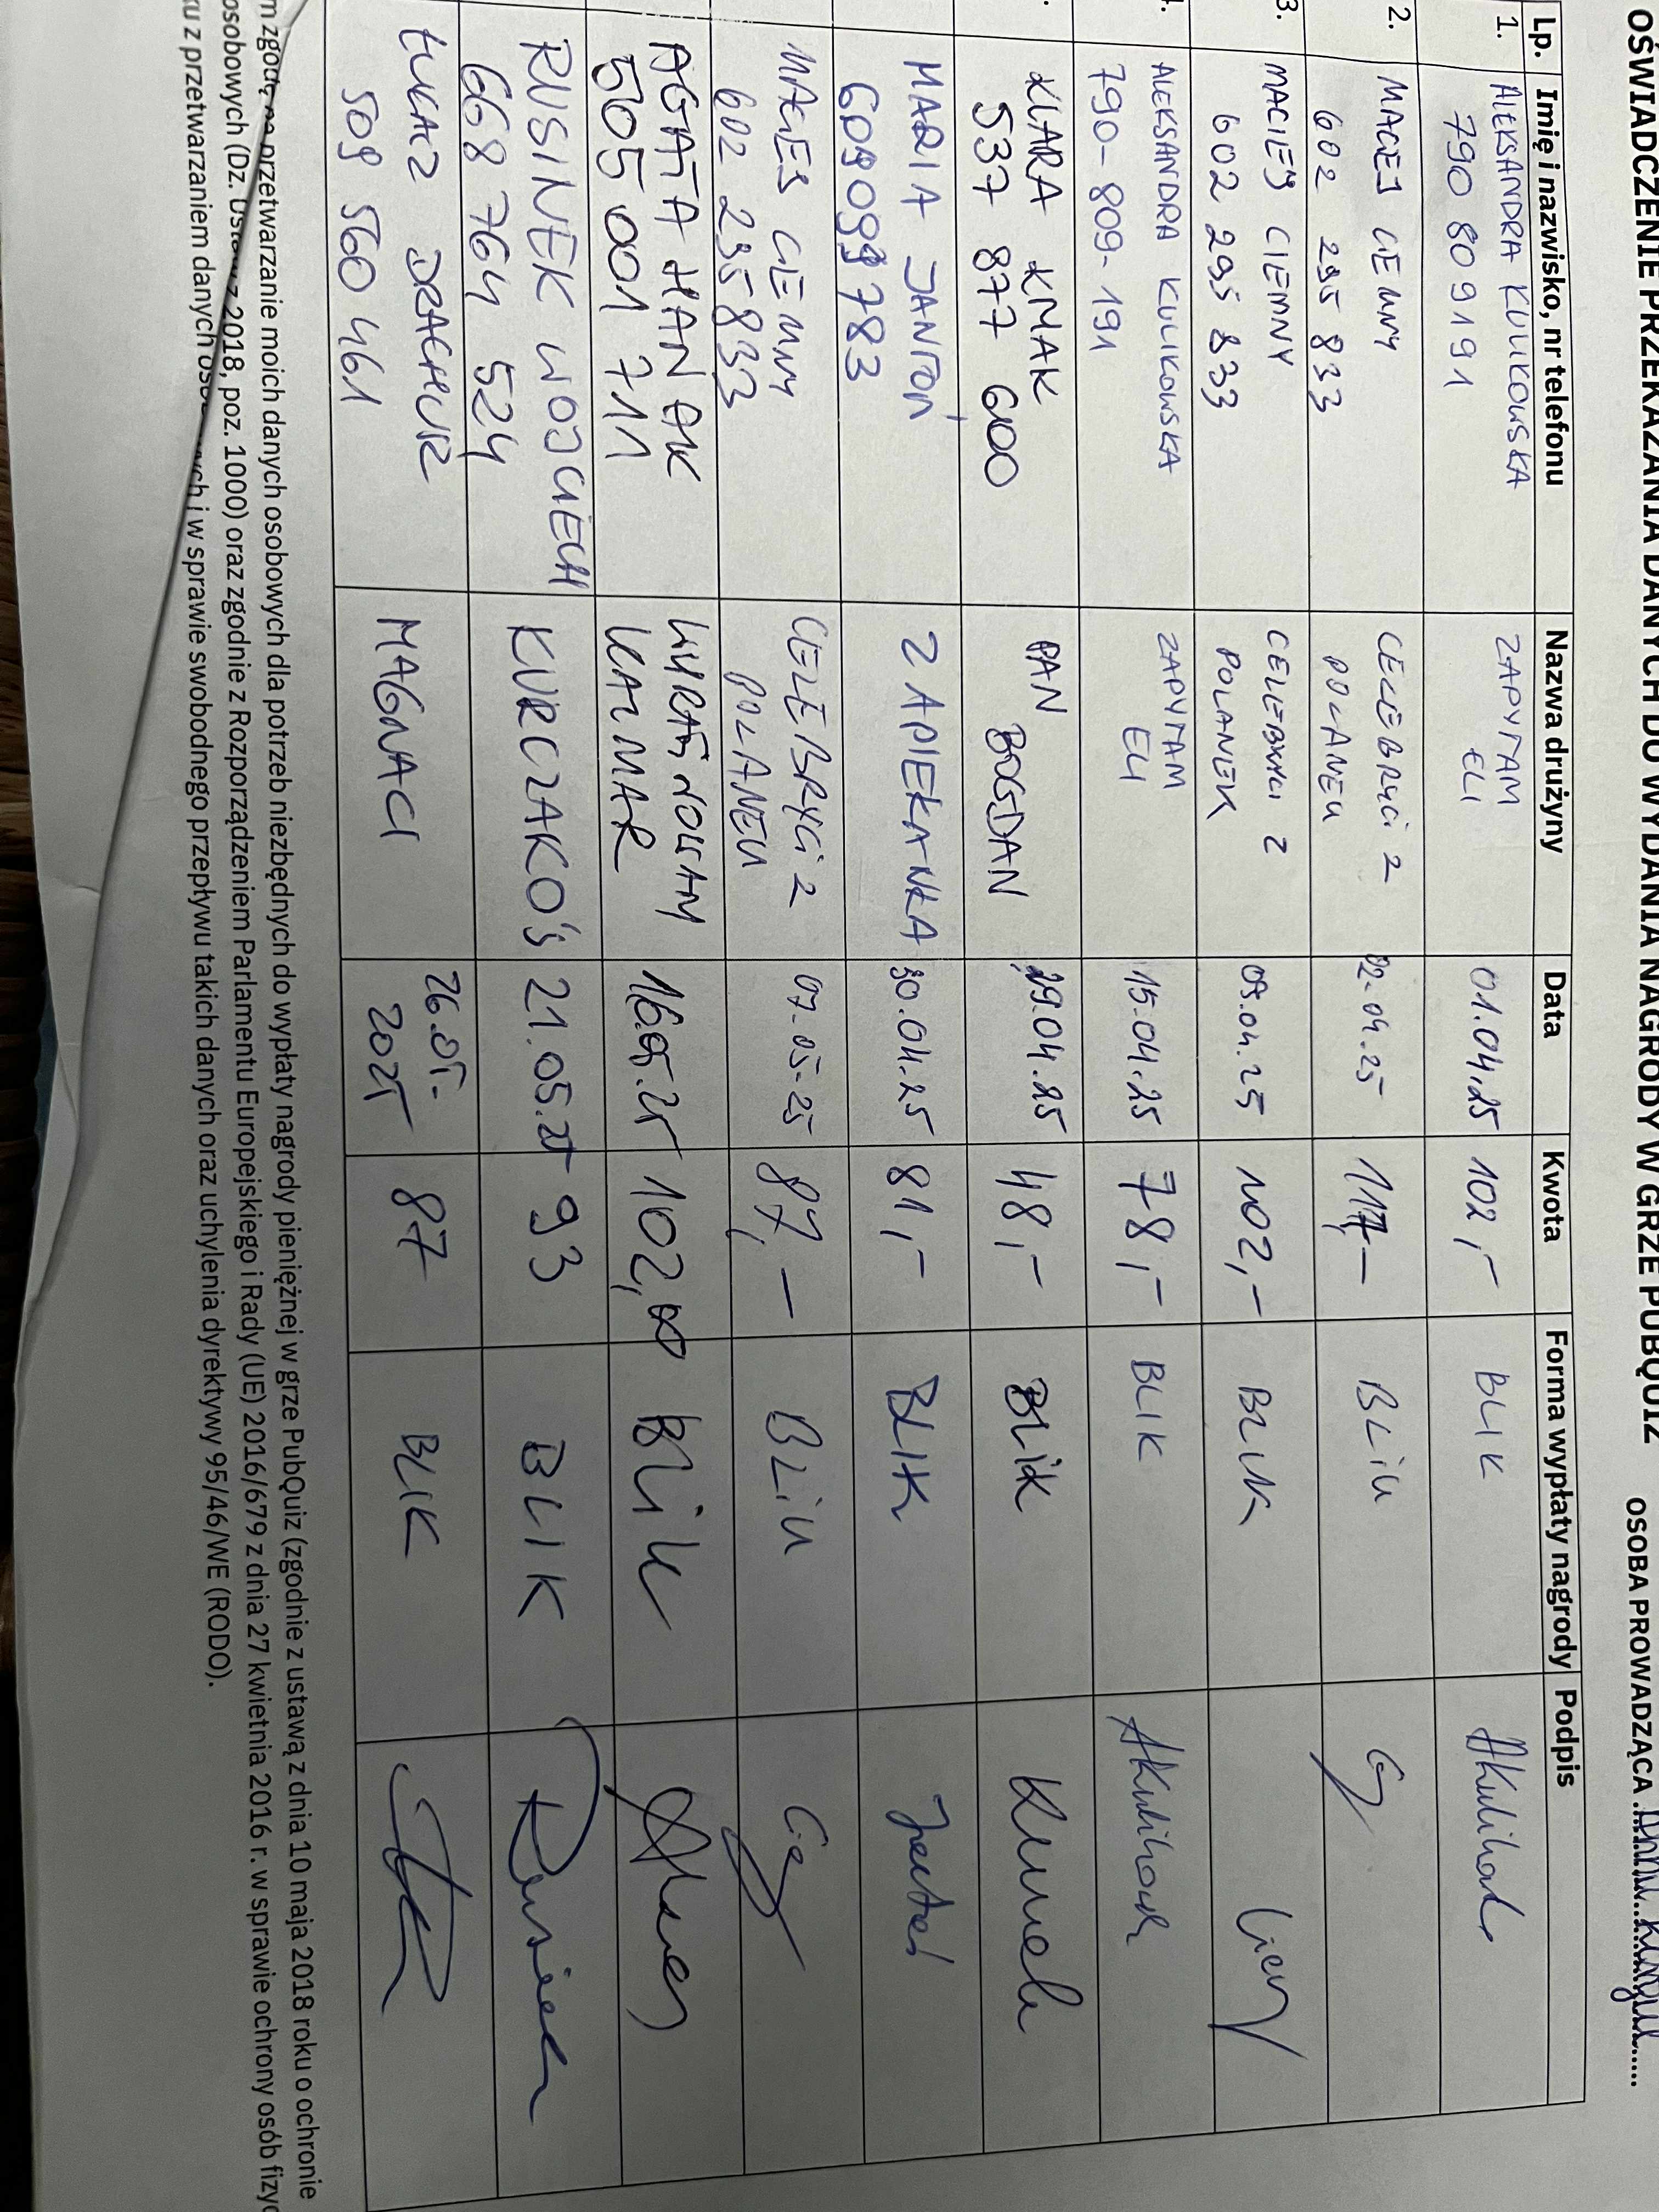 OŚWIADCZENIE PRZEKAZANIA DANYCH DO WYDANIA NAGRODY W GRZE PUBQUIZ
OSOBA PROWADZĄCA
Lp. Imię i nazwisko, nr telefonu Nazwa drużyny Data Kwota Forma wypłaty nagrody Podpis
1. ALEKSANDRA KULIKOWSKA ZAPYTAM 01.04.25 102,- BLIK
790 80 9191 ELI
2. MACIEJ CIEMNY CELEBRYCI Z 02.04.25 117,- BLIK
602 295 833 POLANEK
3. MACIEJ CIEMNY CELEBRYCI Z 09.04.25 102,- BLIK
602 295 833 POLANEK
ALEKSANDRA KULIKOWSKA ZAPYTAM 15.04.25 78,- BLIK
790-809-191 ELI
KLARA KMAK PAN 29.04.25 48,- BLIK
537 877 600 BOGDAN
MARIA JANTOŃ ZAPIEKANKA 30.04.25 81,- BLIK
609099783
MACIEJ CIEMNY CELEBRYCI Z 07.05.25 87,- BLIK
602 295 833 POLANEK
AGATA 16.05.25 102,00 BLIK
505 001 711
RUSINEK WOJCIECH KURCZAKO's 21.05.25 93 BLIK Rusinek
668 764 524
ŁUKASZ MAGNACI 26.05. 87 BLIK
509 560 461 2025
przetwarzanie moich danych osobowych dla potrzeb niezbędnych do wypłaty nagrody pieniężnej w grze PubQuiz (zgodnie z ustawą z dnia 10 maja 2018 roku o ochronie
osobowych (Dz. 2018, poz. 1000) oraz zgodnie z Rozporządzeniem Parlamentu Europejskiego i Rady (UE) 2016/679 z dnia 27 kwietnia 2016 r. w sprawie ochrony osób
z przetwarzaniem danych i w sprawie swobodnego przepływu takich danych oraz uchylenia dyrektywy 95/46/WE (RODO).